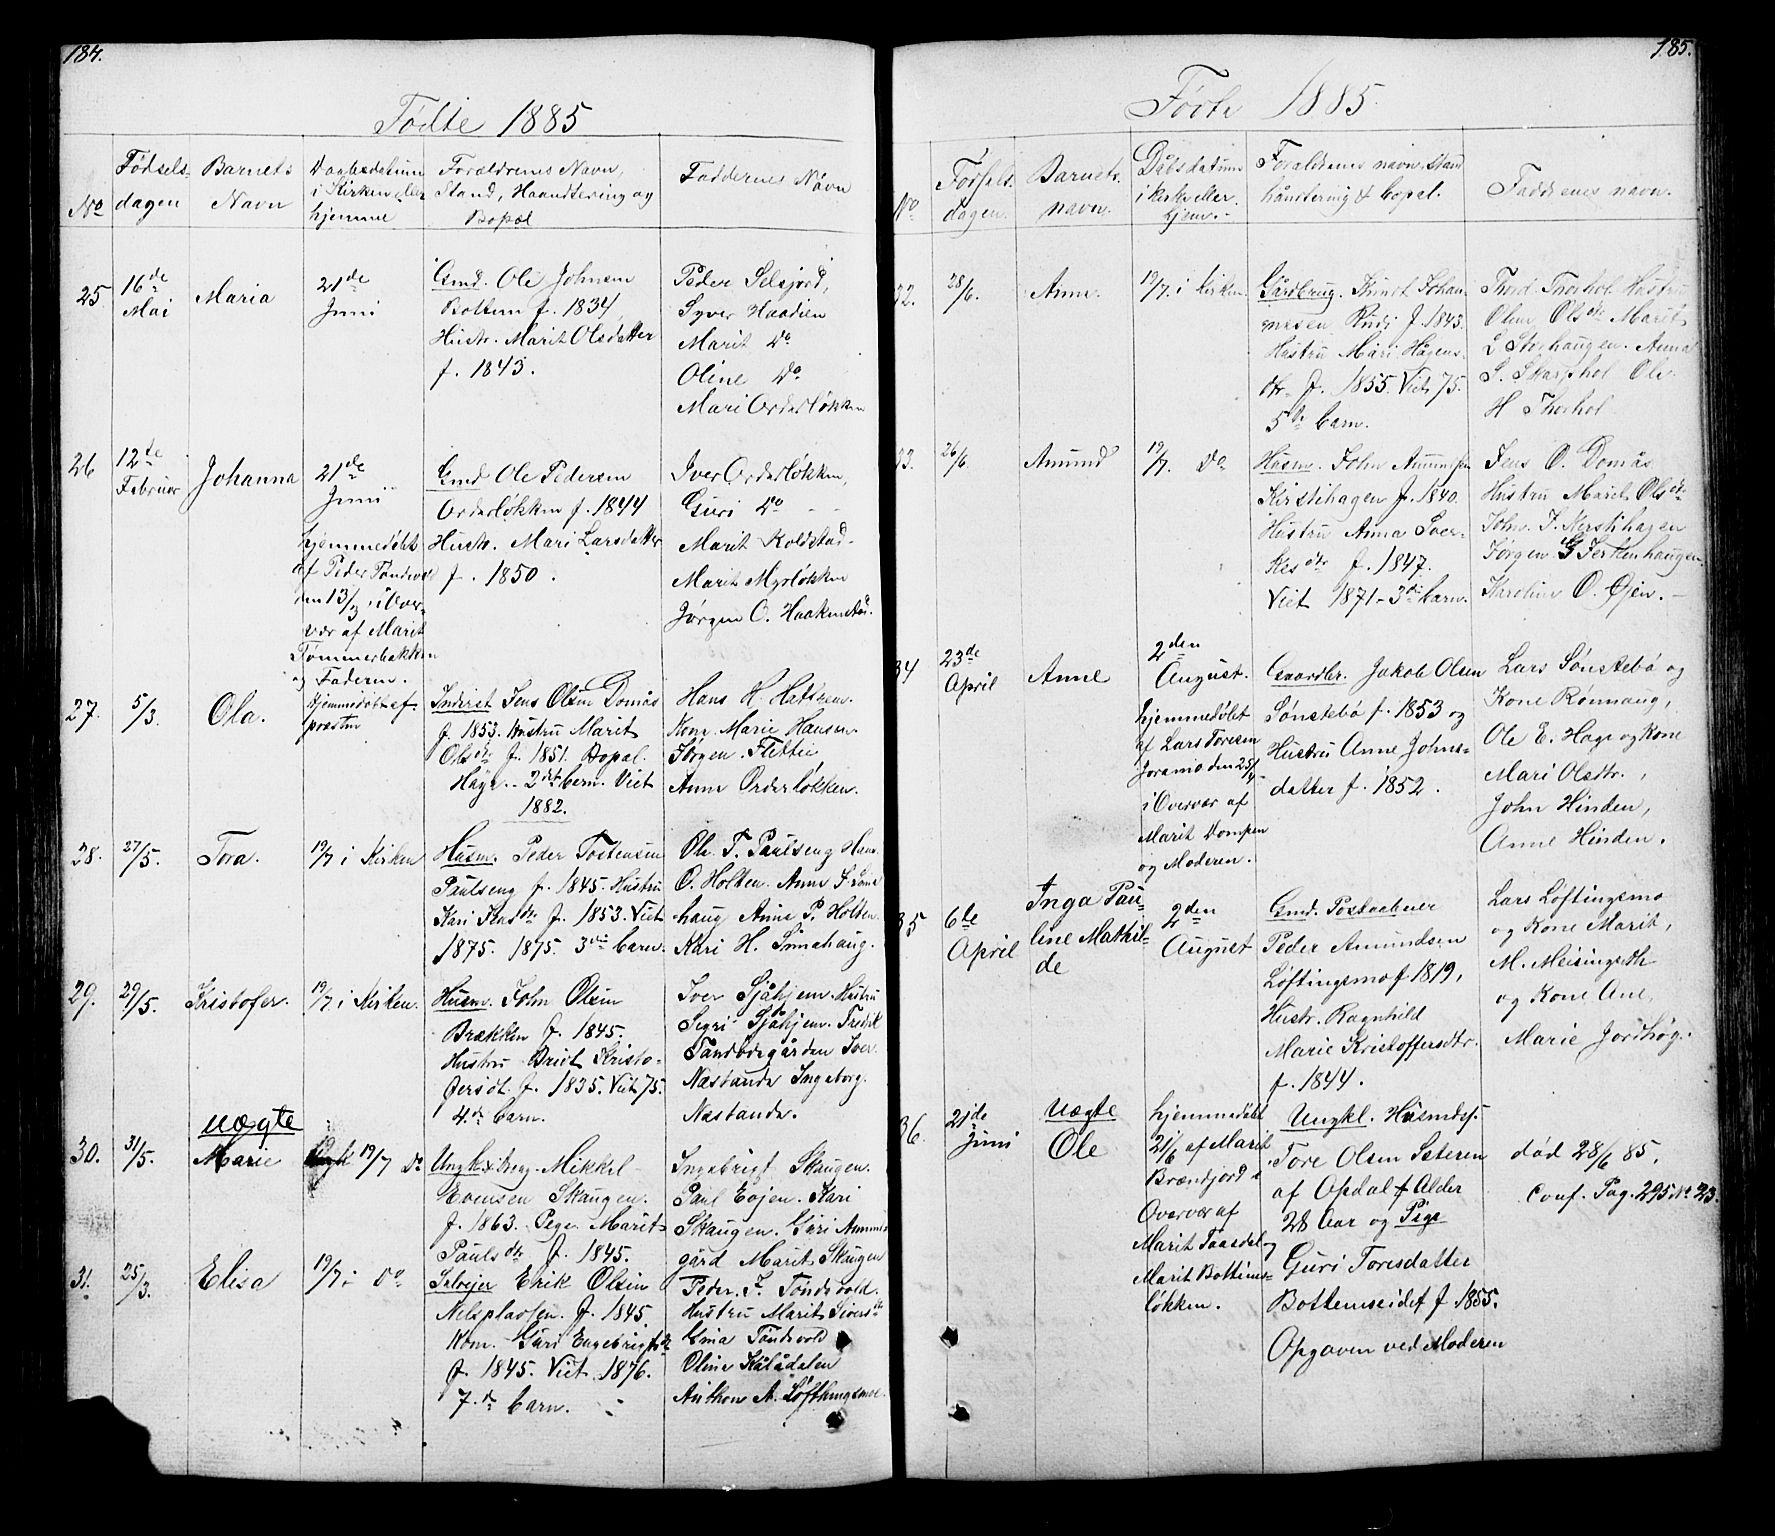 184.
Fødte 1885
No
Fødsels-
dagen
Barnets
Navn
Daabsdatum
i Kirken eller
hjemme
Forældrenes Navn,
Stand, Haandtering og
Bopæl
Faddernes Navn
25
16de
Mai
Maria
21de
Juni
Gmd. Ole Johnsen
Bottem f. 1834,
Hustr. Marit Olsdatter
f. 1843.
Peder Selsjord,
Syver Haadien
Marit Do
Oline Do
Mari Orderløkken
26
12te
Februar
Johanna
21de
Juni
hjemmedøbt
af Peder Tandevold
den 13/2 i Over-
vær af Marit
Tømmerbakken
og Faderen.
Gmd Ole Pedersen
Orderløkken f. 1844
Hustr. Mari Larsdatter
f. 1850.
Iver Orderløkken,
Guri Do
Marit Koldstad
Marit Myrløkken
Jørgen O. Haakenstad.
27.
5/3.
Ola.
hjemmedøbt af
præsten
Inderst Jens Olsen Domås
f. 1853. Hustru Marit
Olsdtr f. 1851. Bopæl.
Hage. 2det barn. Viet
1882.
Hans H.
Kone Marie Hansen
Jørgen Flittie
Anne Orderløkken.
28.
27/5.
Tora.
19/7 i Kirken
Husm. Peder Tostensen
Paulseng f. 1845. Hustru
Kari Jensdtr f. 1853. Viet
1875. 1875. 3die barn.
Ole T. Paulseng Hans
O. Holten. Anne
haug Anne P. Holten
Kari H. Innahaug.
29.
29/5.
Kristofer.
19/7 i Kirken.
Husm. John Olsen
Brækken f. 1845.
Hustru Brit Kristo-
fersdt. f. 1835. Viet 75.
4de barn.
Iver Sjåhjem. Hustru
Segri Sjåhjem. Fredrik
Tandbdegården Iver
Næstande Ingeborg
Næstande.
30.
31/5.
Uægte
Marie
19/7 Do
Ungk. Mikkel
Evensen Skaugen.
f. 1863. Pige Marit
Paulsdtr f. 1845.
Ingebrigt Skaugen.
Paul Evjen. Kari
Skaugen. Guri Ammis
gård Marit Skaugen
31.
25/3.
Elisa
19/7 i Do
Selveier Erik Olsen
Nelsplassen. f. 1845.
Kone. Guri Engebrigtsd
f. 1845. Viet. 1876.
7de barn.
Peder. J. Tøndevold.
Hustru Marit Siversdtr
Gina Tøndevold
Oline Kålådalen
Anthon A. Løfthingsmoe.
185.
Fødte 1885.
No
Fødsels-
dagen.
Barnets
navn.
Dåbsdatum
i kirke eller
hjem.
Forældrenes navn, stand
håndtering & bopæl.
Faddrenes navn.
32.
28/6.
Anne.
19/7. i kirken
Gårdbrug. Knut Johan-
nesen Rudi f. 1843.
Hustru Mari Hågens-
dtr f. 1855. Viet 75.
5te barn.
Thord Thorhol Hustru
Oline Olsdtr Marit
L Storhaugen. Anna
S. Skarphol Ole
H Thorhol
33.
26/6.
Amund
19/7. Do
Husm. John Amundsen
Kirstihagen f. 1840.
Hustru Anna Sver-
kesdtr f. 1847.
Viet 1871 - 3die barn.
Jens O. Domås
Hustru Marit Olsdtr
John J. Kerstihagen
Jørgen G Jerkenhaugen
Karoline O. Øjen.
34
23de
April
Anne
2den
August.
hjemmedøbt
af Lars Toresen
Joramo den 25/4
i Overvær af
Marit Dompen
og Moderen.
Gaardbr. Jakob Olsen
Sønstebø f. 1853 og
Hustru Anne Johns-
datter f. 1852.
Lars Sønstebø og
Kone Rønnaug,
Ole E. Hage og Kone
Mari Olsdtr.,
John Hinden,
Anne Hinden.
35
6te
April
Inga Pau-
line Mathil-
de
2den
August
Gmd. Postaabner
Peder Amundsen
Løftingsmo f 1819,
Hustr. Ragnhild
Marie Kristoffersdtr.
f. 1844.
Lars Løftingsmo
og Kone Marit,
M. Meisingseth
og Kone Ane,
Marie Jordhøg.
36.
21de
Juni
Uægte
Ole
hjemmedøbt
21/6 af Marit
Brændjord i
Overvær af
Marit Taasdal og
Marit Bottems-
løkken.
Ungkl. Husmdsf.
Tore Olsen Sæteren
af Opdal f Alder
28 Aar og Pige
Guri Toresdatter
Bottemseidet f 1855.
Opgaven ved Moderen
død 28/6 85.
Conf. Pag. 295 No 23.